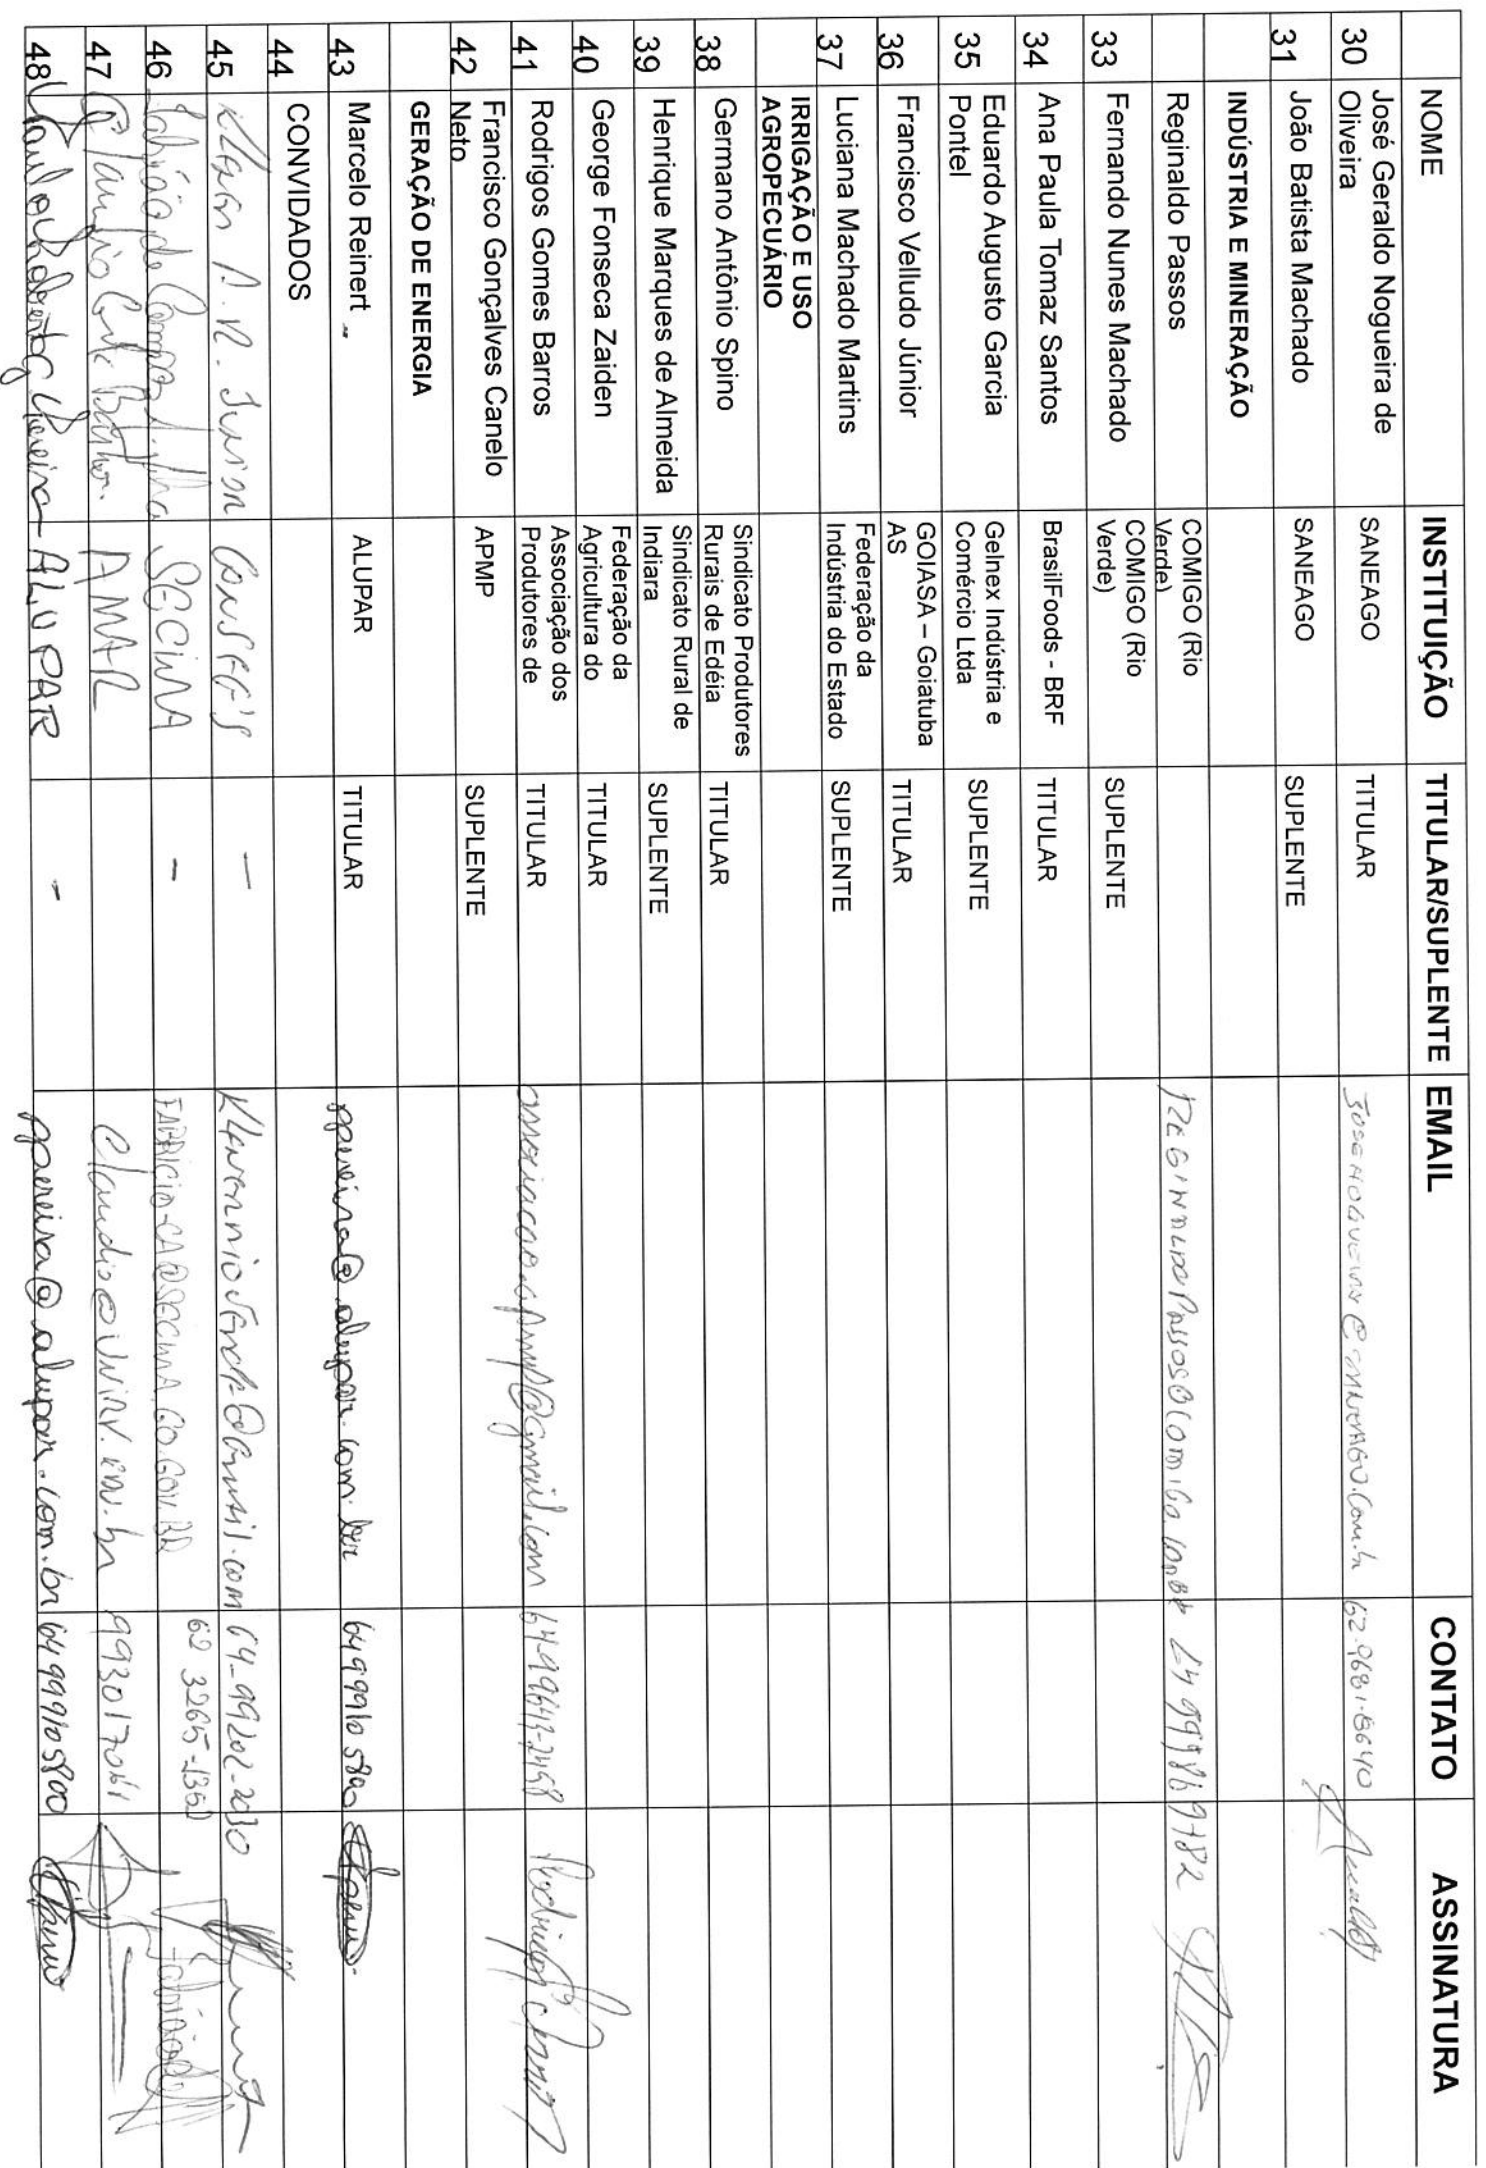 NOME INSTITUIÇÃO TITULAR/SUPLENTE EMAIL CONTATO ASSINATURA
30 José Geraldo Nogueira de Oliveira SANEAGO TITULAR 62-9681-8640
31 João Batista Machado SANEAGO SUPLENTE
INDÚSTRIA E MINERAÇÃO
Reginaldo Passos COMIGO (Rio Verde) REGINALDOPASSOS@COMIGO.COM.BR
33 Fernando Nunes Machado COMIGO (Rio Verde) SUPLENTE
34 Ana Paula Tomaz Santos BrasilFoods - BRF TITULAR
35 Eduardo Augusto Garcia Pontel Gelnex Indústria e Comércio Ltda SUPLENTE
36 Francisco Velludo Júnior GOIASA – Goiatuba AS TITULAR
37 Luciana Machado Martins Federação da Indústria do Estado SUPLENTE
IRRIGAÇÃO E USO AGROPECUÁRIO
38 Germano Antônio Spino Sindicato Produtores Rurais de Edéia TITULAR
39 Henrique Marques de Almeida Sindicato Rural de Indiara SUPLENTE
40 George Fonseca Zaiden Federação da Agricultura do TITULAR
41 Rodrigos Gomes Barros Associação dos Produtores de TITULAR associacao.apmp@gmail.com 64-99643-2458
42 Francisco Gonçalves Canelo Neto APMP SUPLENTE
GERAÇÃO DE ENERGIA
43 Marcelo Reinert ALUPAR TITULAR ppereira@alupar.com.br 64999105800
44 CONVIDADOS
45 64-99202-2030
46 SECIMA - FABRICIO-CA@SECIMA.GO.GOV.BR 62 3265-1360
47 AMAR claudio@unirv.edu.br 993017061
48 Paulo Roberto Pereira ALUPAR - ppereira@alupar.com.br 64999105800